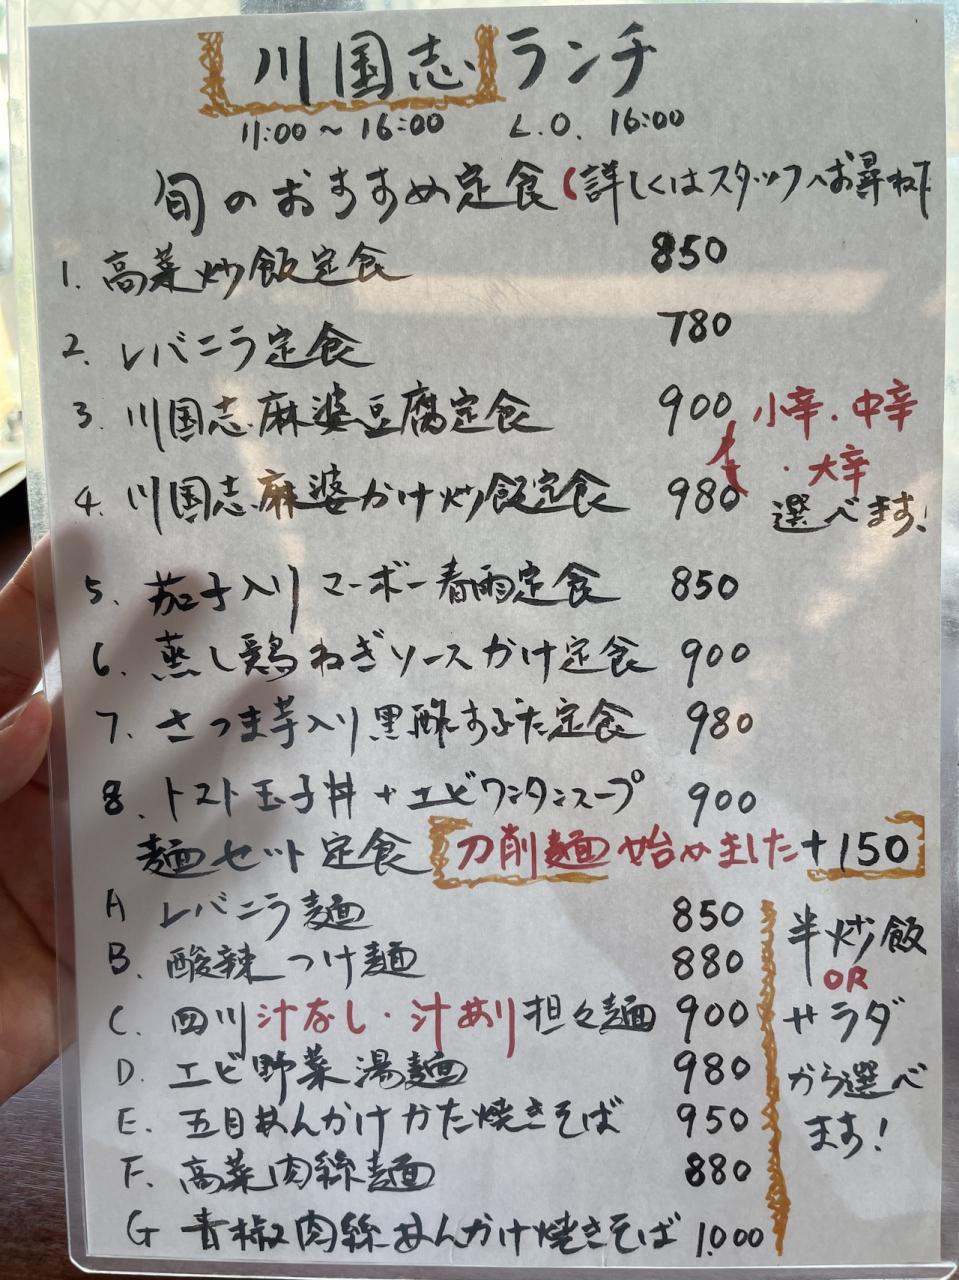 川国志 ランチ
11:00～16:00 L.O. 16:00
旬のおすすめ定食(詳しくはスタッフへお尋ね下
1. 高菜炒飯定食 850
2. レバニラ定食 780
3. 川国志麻婆豆腐定食 900
4. 川国志麻婆かけ炒飯定食 980
小辛・中辛
・大辛
選べます!
5. 茄子入りマーボー春雨定食 850
6. 蒸し鶏ねぎソースかけ定食 900
7. さつま芋入り黒酢すぶた定食 980
8. トマト玉子丼+エビワンタンスープ 900
麺セット定食 刀削麺始めました+150
A レバニラ麺 850
B. 酸辣つけ麺 880
C. 四川汁なし・汁あり担々麺 900
D. エビ野菜湯麺 980
E. 五目あんかけかた焼きそば 950
F. 高菜肉絲麺 880
G 青椒肉絲あんかけ焼きそば 1,000
半炒飯
OR
サラダ
から選べ
ます!